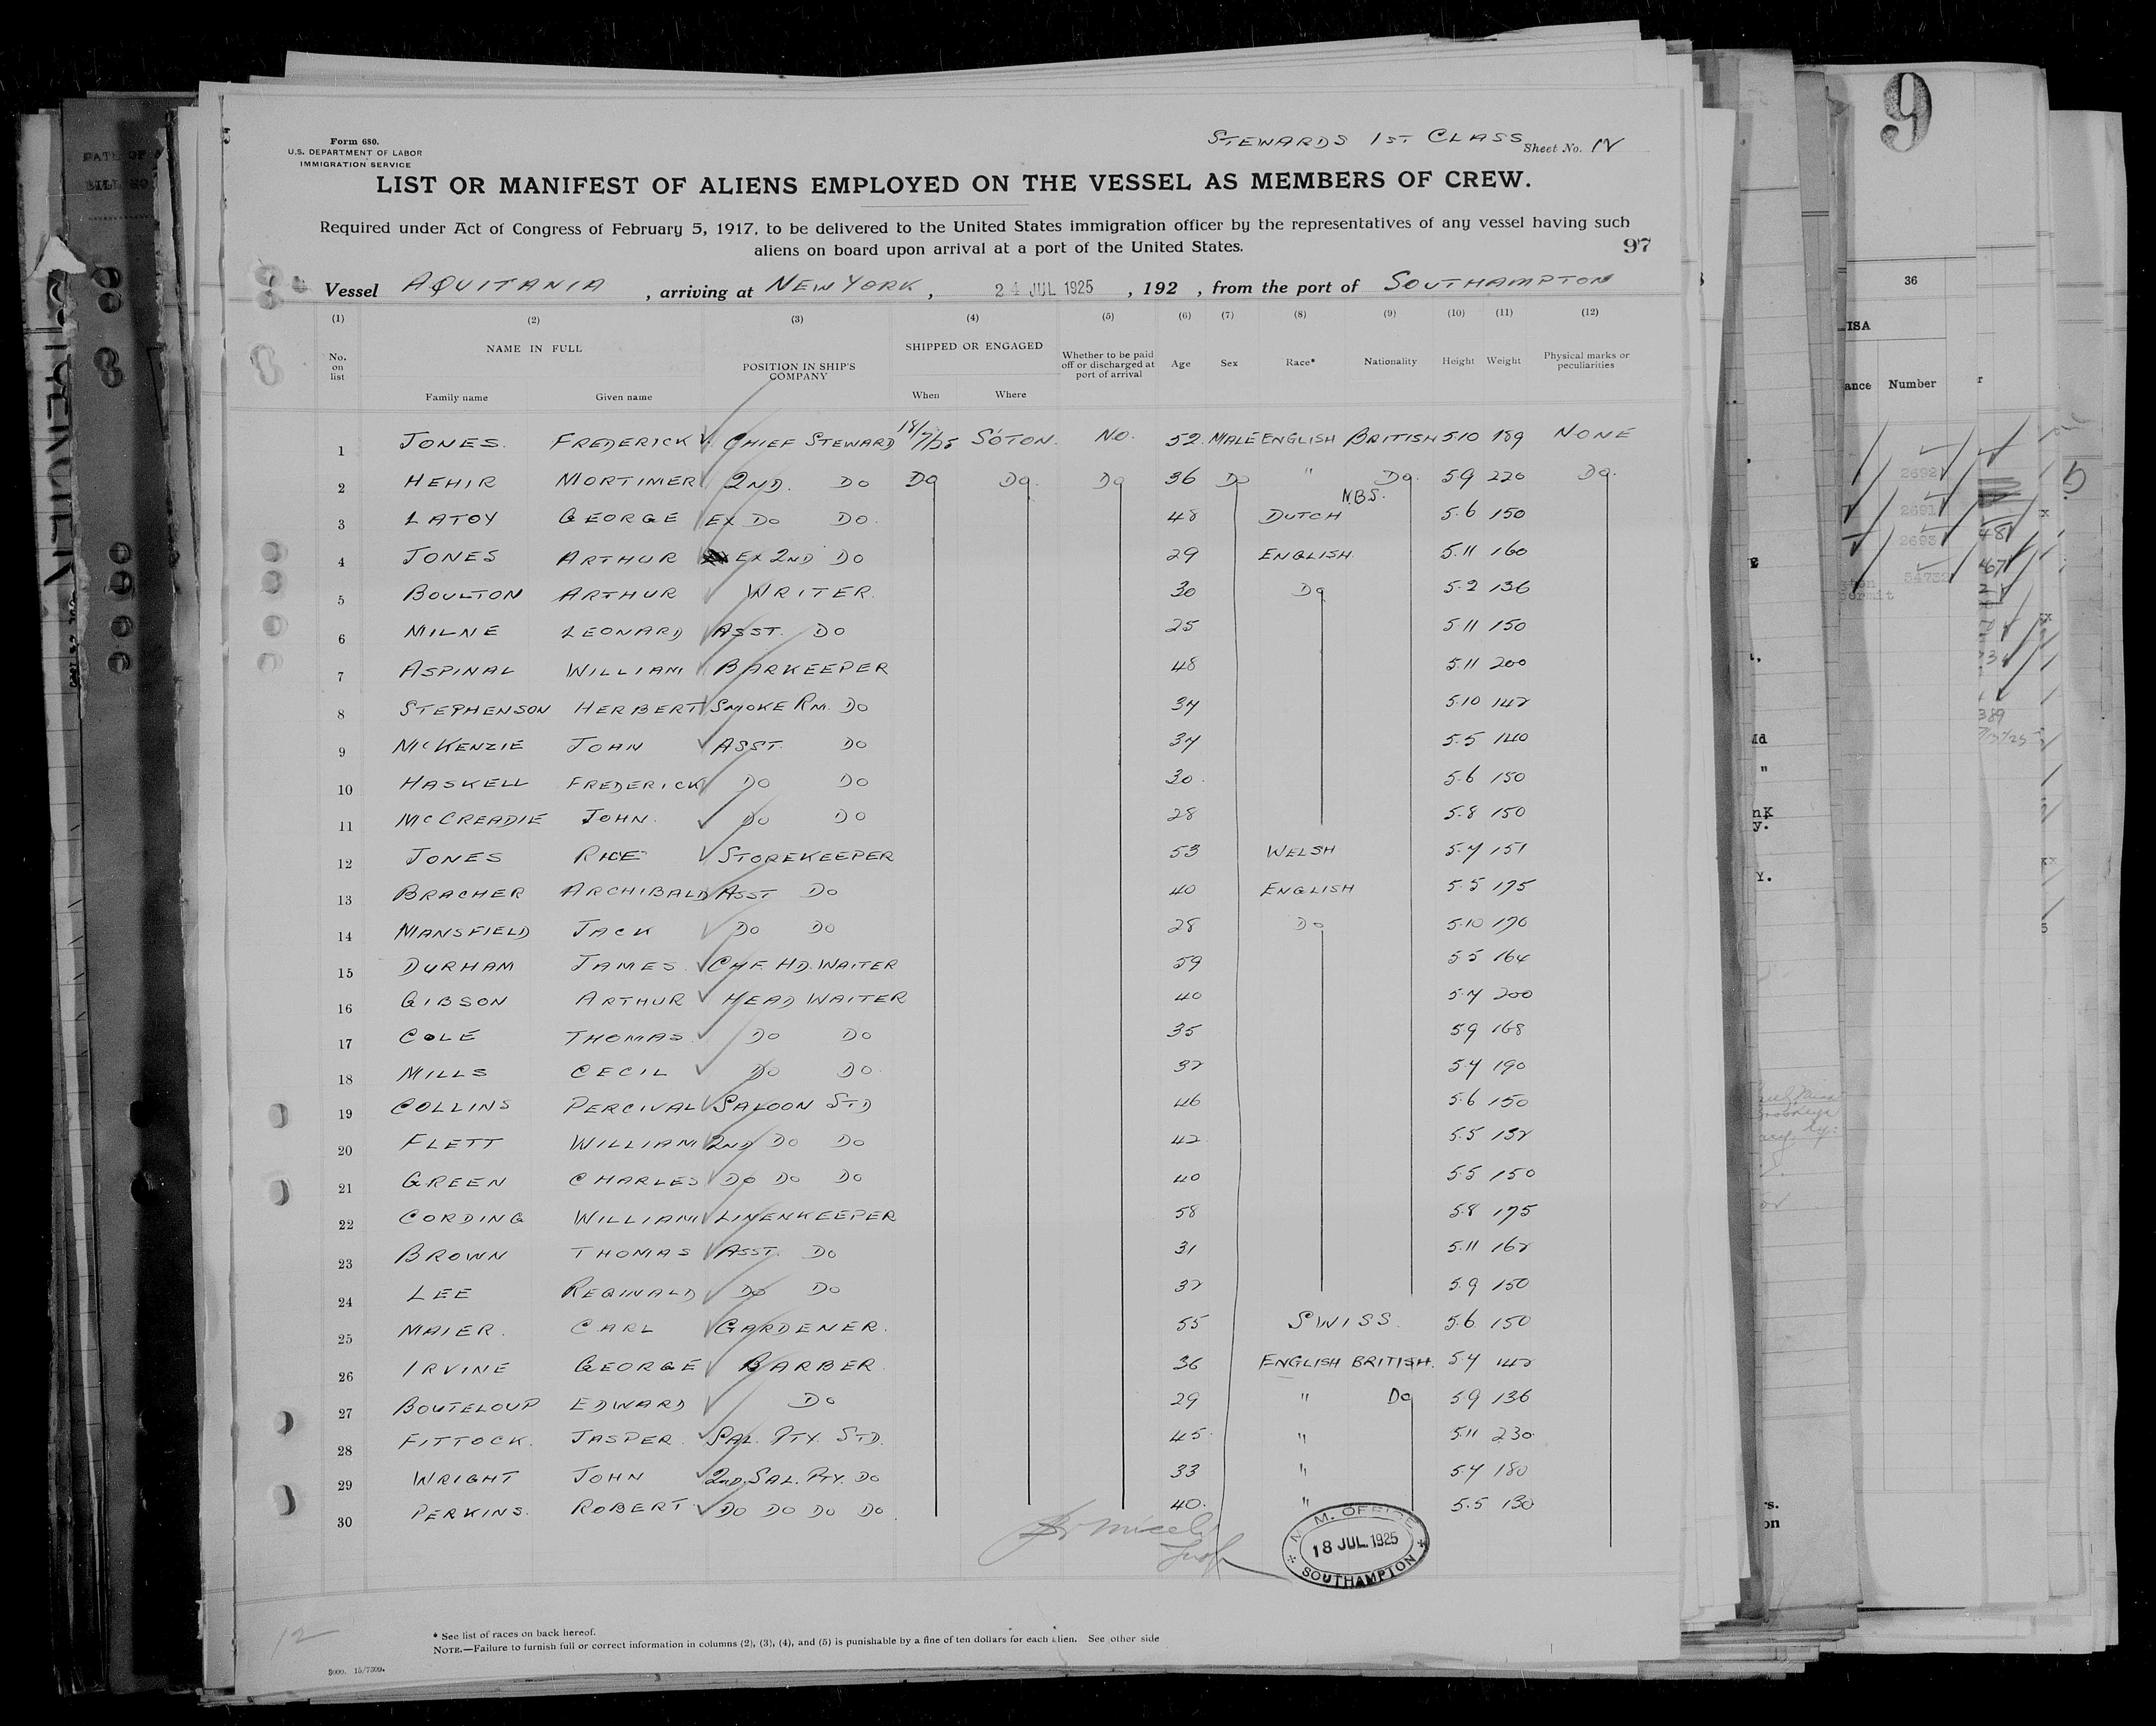 Form 680.
U.S. DEPARTMENT OF LABOR
IMMIGRATION SERVICE
STEWARDS 1ST CLASS Sheet No.
LIST OR MANIFEST OF ALIENS EMPLOYED ON THE VESSEL AS MEMBERS OF CREW.
Required under Act of Congress of February 5, 1917, to be delivered to the United States immigration officer by the representatives of any vessel having such
aliens on board upon arrival at a port of the United States.
97
Vessel AQUITANIA, arriving at NEW YORK, 24 JUL 1925, 192 , from the port of SOUTHAMPTON
(1) (2) (3) (4) (5) (6) (7) (8) (9) (10) (11) (12)
No. on list NAME IN FULL Family name Given name POSITION IN SHIP'S COMPANY SHIPPED OR ENGAGED When Where Whether to be paid off or discharged at port of arrival Age Sex Race* Nationality Height Weight Physical marks or peculiarities
1 JONES. FREDERICK CHIEF STEWARD 18/7/25 S'OTON. NO. 52 MALE ENGLISH BRITISH 5.10 189 NONE
2 HEHIR MORTIMER 2ND. DO DO DO. DO 36 DO " DO. 5.9 220 DO.
N.B.S.
3 LATOY GEORGE EX DO DO. 48 DUTCH 5.6 150
4 JONES ARTHUR EX 2ND DO 29 ENGLISH. 5.11 160
5 BOULTON ARTHUR WRITER. 30 DO 5.2 136
6 MILNE LEONARD ASST. DO 25 5.11 150
7 ASPINAL WILLIAM BARKEEPER 48 5.11 200
8 STEPHENSON HERBERT SMOKE RM. DO 34 5.10 142
9 MCKENZIE JOHN ASST. DO 34 5.5 140
10 HASKELL FREDERICK DO DO 30. 5.6 150
11 MCCREADIE JOHN. DO DO 28 5.8 150
12 JONES RICE STOREKEEPER 53 WELSH 5.4 151
13 BRACHER ARCHIBALD ASST DO 40 ENGLISH 5.5 175
14 MANSFIELD JACK DO DO 28 DO 5.10 170
15 DURHAM JAMES CHF. HD. WAITER 59 5.5 164
16 GIBSON ARTHUR HEAD WAITER 40 5.4 200
17 COLE THOMAS. DO DO 35 5.9 168
18 MILLS CECIL DO DO. 32 5.4 190
19 COLLINS PERCIVAL SALOON STD 46 5.6 150
20 FLETT WILLIAM 2ND DO DO 42 5.5 132
21 GREEN CHARLES DO DO DO 40 5.5 150
22 CORDING WILLIAM LINENKEEPER 58 5.8 175
23 BROWN THOMAS ASST. DO 31 5.11 162
24 LEE REGINALD DO DO 32 5.9 150
25 MAIER. CARL GARDENER. 55 SWISS. 5.6 150
26 IRVINE GEORGE BARBER. 36 ENGLISH BRITISH. 5.4 142
27 BOUTELOUP EDWARD DO 29 " DO 5.9 136
28 FITTOCK. JASPER. SAL. PTY. STD. 45. " 5.11 230
29 WRIGHT JOHN 2ND. SAL. PTY. DO 33 " 5.4 180
30 PERKINS. ROBERT. DO DO DO DO. 40. " 5.5 130
M. M. OFFICE
18 JUL. 1925
SOUTHAMPTON
12
* See list of races on back hereof.
NOTE.—Failure to furnish full or correct information in columns (2), (3), (4), and (5) is punishable by a fine of ten dollars for each alien. See other side
9
36
Number
2692
2691
2693
54732